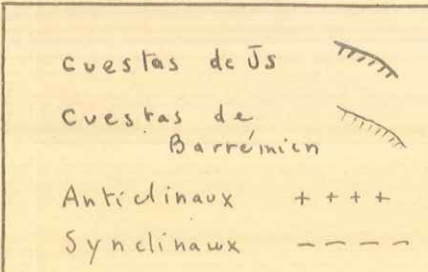 Cuestas de Js
Cuestas de
Barrémien
Anticlinaux + + + +
Synclinaux - - - -